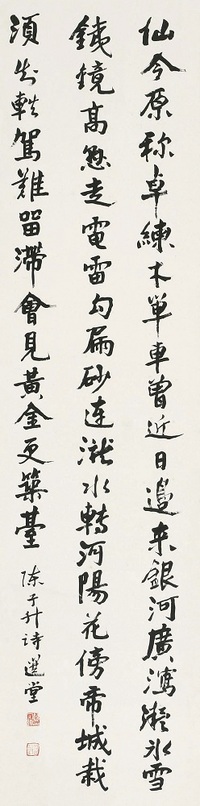 仙令原称卓練才単車曾近日邊来銀河廣瀉凝冰雪
鐵鏡高懸走電雷勾屚砂連水轉河陽花傍帝城栽
須知軼駕難留滯會見黃金更築臺 陈子升诗 選堂